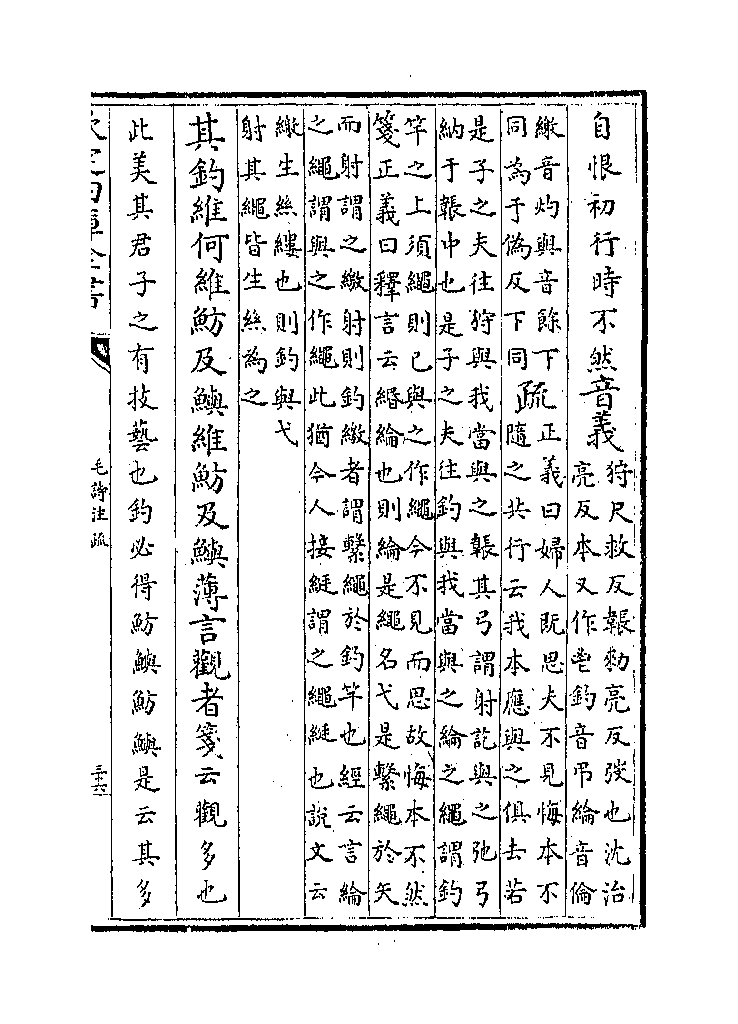 自恨初行時不然音義
狩尺救反韔勑亮反弢也沈治
亮反本又作鬯釣音弔綸音倫
繳音灼與音餘下
同為于偽反下同
疏
正義曰婦人既思夫不見悔本不
隨之共行云我本應與之俱去若
是子之夫往狩與我當與之韔其弓謂射訖與之弛弓
納于韔中也是子之夫往釣與我當與之綸之繩謂釣
竿之上須繩則已與之作繩今不見而思故悔本不然
箋正義曰釋言云緡綸也則綸是繩名弋是繫繩於矢
而射謂之繳射則釣繳者謂繫繩於釣竿也經云言綸
之繩謂與之作繩此猶今人接綖謂之繩綖也說文云
繳生絲縷也則釣與弋
射其繩皆生絲為之
其釣維何維魴及鱮維魴及鱮薄言觀者箋云觀多也
此美其君子之有技藝也釣必得魴鱮魴鱮是云其多
欽定四庫全書
毛詩注疏
三十六